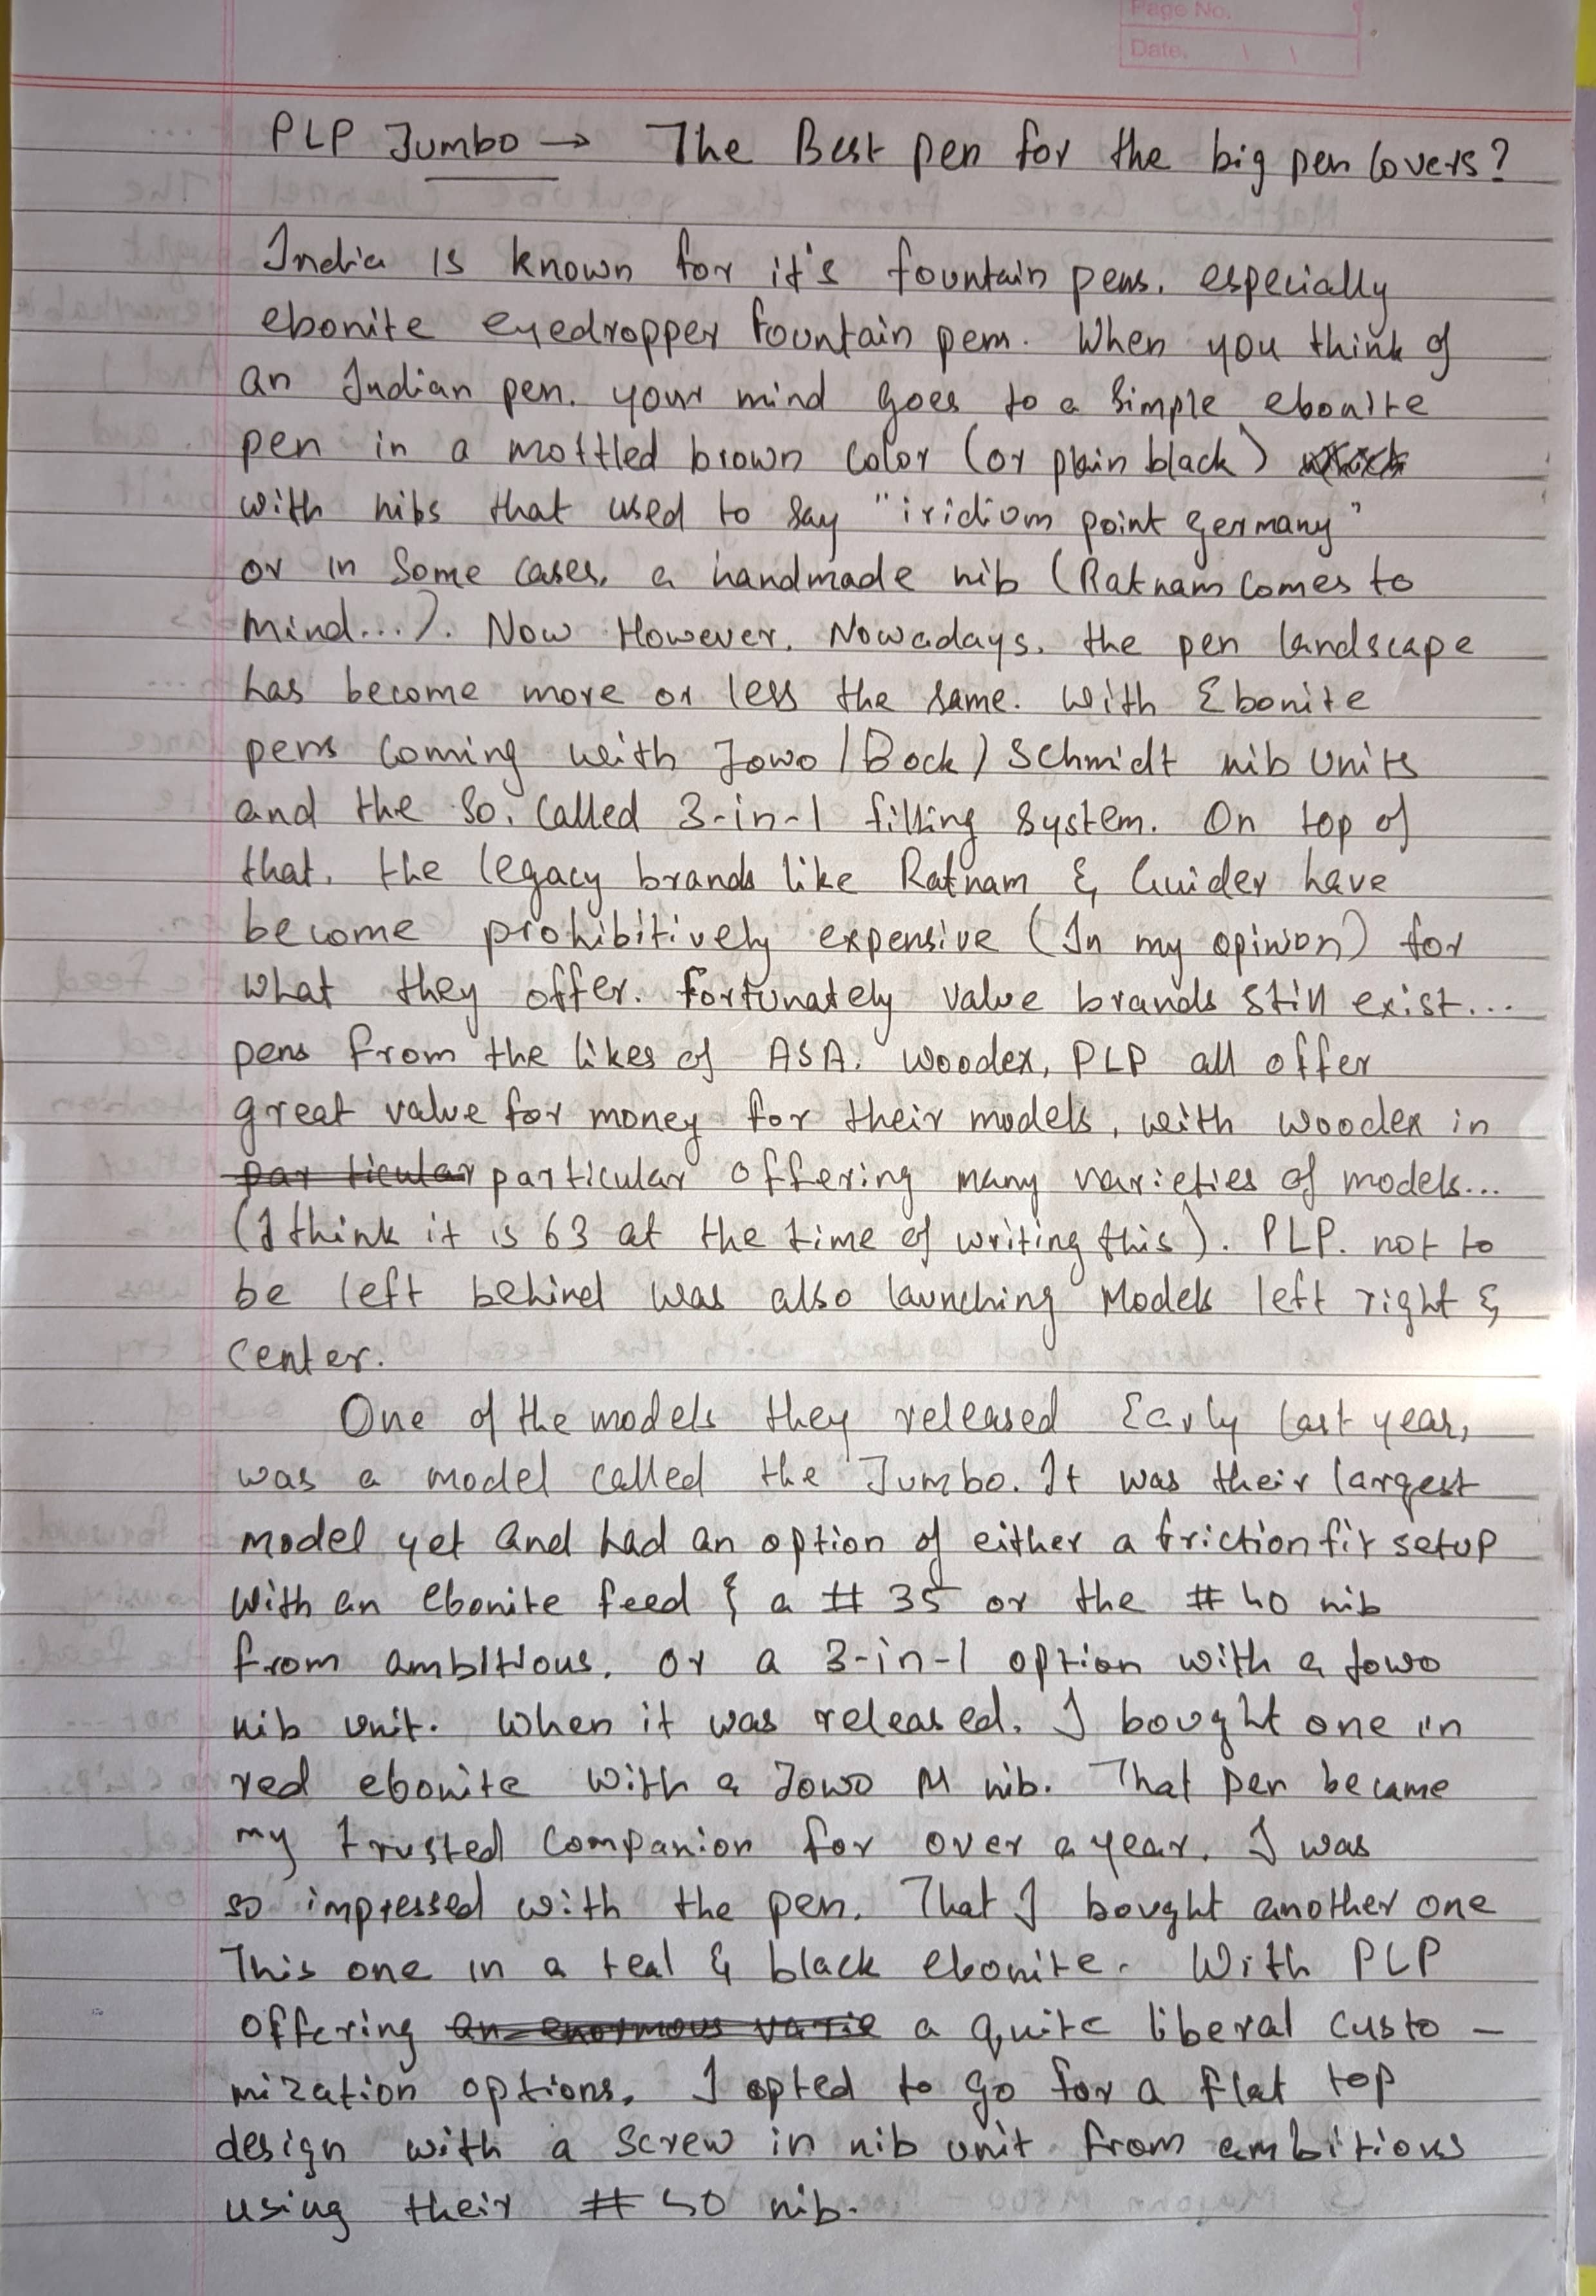 Page No.
Date.
PLP Jumbo → The Best pen for the big pen lovers?
India is known for it's fountain pens, especially
ebonite eyedropper fountain pens. When you think of
an Indian pen, your mind goes to a simple ebonite
pen in a mottled brown color (or plain black)
with nibs that used to say "iridium point germany"
or in some cases, a handmade nib (Ratnam comes to
mind...). Now However, Nowadays, the pen landscape
has become more or less the same. With Ebonite
pens coming with Jowo/Bock/Schmidt nib units
and the so, called 3-in-1 filling system. On top of
that, the legacy brands like Ratnam & Guider have
become prohibitively expensive (In my opinion) for
what they offer. Fortunately value brands still exist...
pens from the likes of ASA, Woodex, PLP all offer
great value for money for their models, with woodex in
particular particular offering many varieties of models...
(I think it is 63 at the time of writing this). PLP, not to
be left behind was also launching Models left right &
center.
One of the models they released Early last year,
was a model called the Jumbo. It was their largest
model yet and had an option of either a friction fit setup
with an ebonite feed & a # 35 or the # 40 nib
from ambitious, or a 3-in-1 option with a Jowo
nib unit. When it was released, I bought one in
red ebonite with a Jowo M nib. That pen became
my trusted companion for over a year. I was
so impressed with the pen, That I bought another one
This one in a teal & black ebonite. With PLP
offering an enormous varie a quite liberal custo -
mization options, I opted to go for a flat top
design with a screw in nib unit from ambitious
using their # 50 nib.